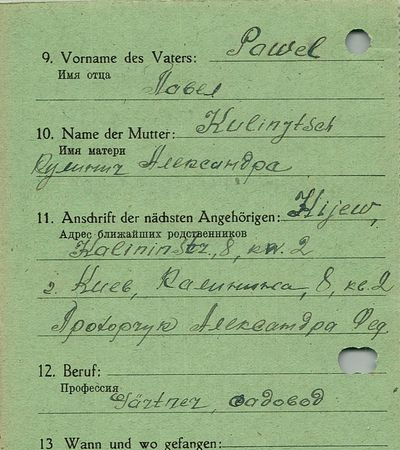 9. Vorname des Vaters: Pawel
Имя отца
Павел
10. Name der Mutter: Kulinytsch
Имя матери
Кулинич Александра
11. Anschrift der nächsten Angehörigen: Kijew,
Адрес ближайших родственников
Kalininstr., 8, kw. 2
г. Киев, Калинина, 8, кв. 2
Прохорчук Александра Фед.
12. Beruf:
Профессия
Gärtner, садовод
13 Wann und wo gefangen: